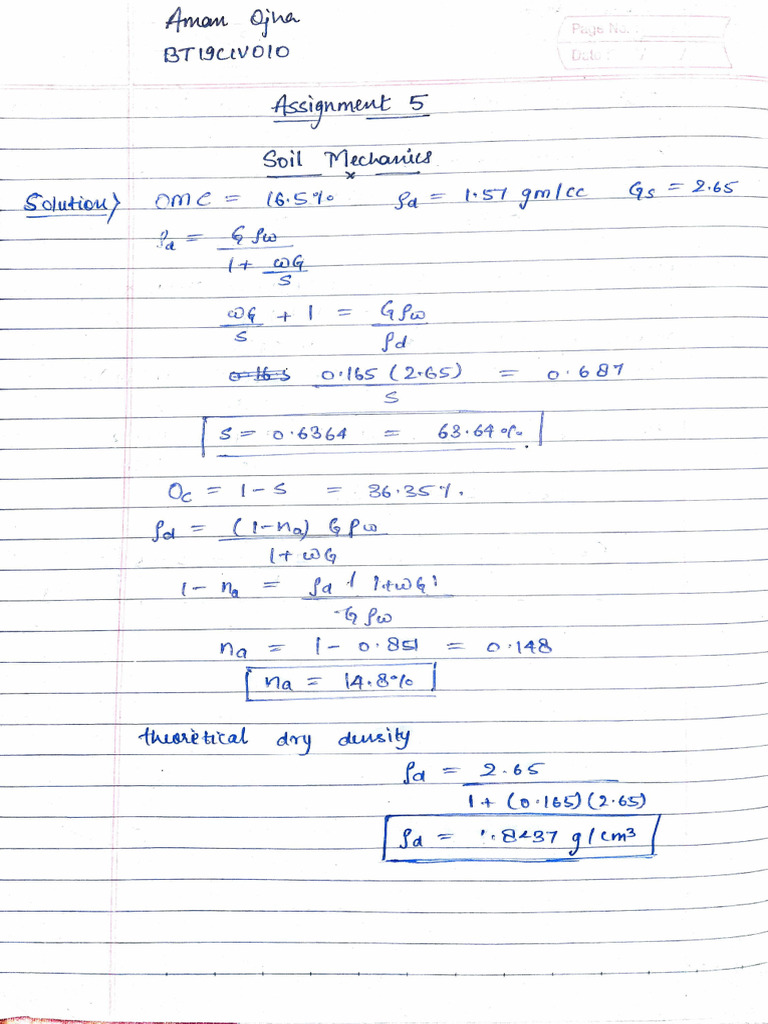 Aman Ojha
BT19CIV010
Page No.
Date : / /
Assignment 5
Soil Mechanics
x
Solution) OMC = 16.5% ρd = 1.57 gm/cc Gs = 2.65
ρd = G ρω / (1 + ωG/S)
ωG/S + 1 = Gρω / ρd
0.165 (2.65) / S = 0.687
S = 0.6364 = 63.64%.
ac = 1-S = 36.35%.
ρd = (1-na) Gρω / (1+ωG)
1 - na = ρd (1+ωG) / Gρω
na = 1 - 0.851 = 0.148
na = 14.8%
theoretical dry density
ρd = 2.65 / (1 + (0.165)(2.65))
ρd = 1.8437 g/cm³